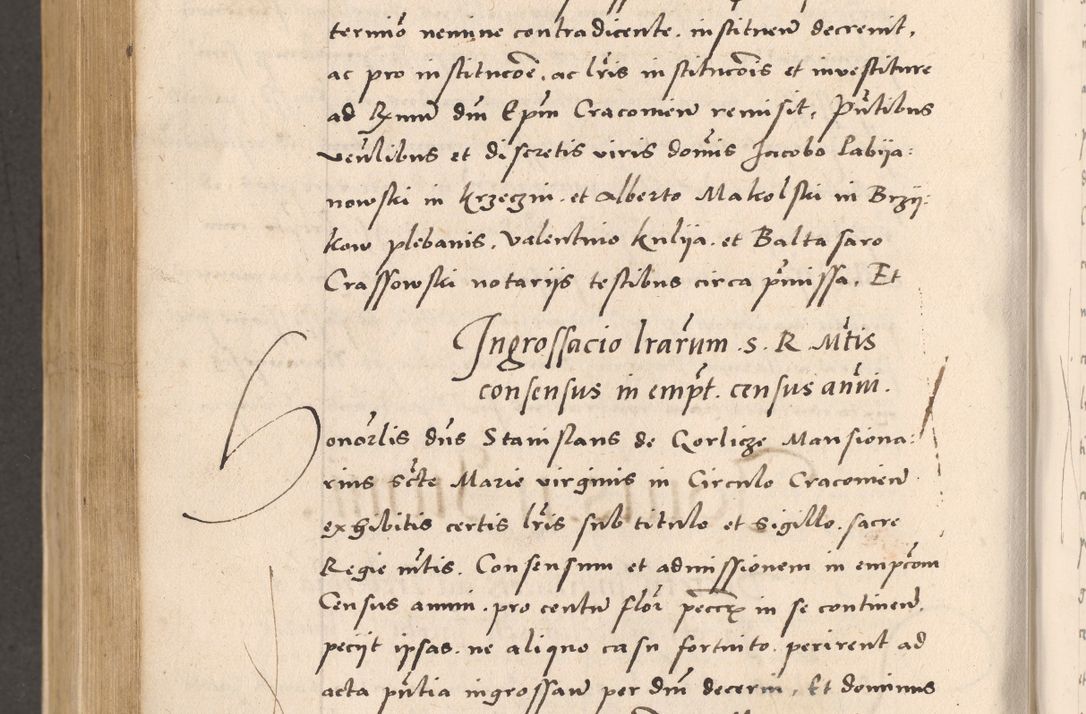 terminō nemine contradicente. instituen̄ decrevit,
ac pro institucōe, ac lr̄is institucōis et investiture
ad Rx̄mum dn̄m Ep̄m Cracovien̄ remisit, Pn̄tibus
ven̄libus et discretis viris domīs Jacobo Labija:
nowski in Krzeczin. et Alberto Makolski in Brzij:
kow plebanis, Valentino Kulija. et Baltasaro
Crassowski notarijs testibus circa p̄missa, Et
Ingrossacio lrārum .s. R. Mt̄is
consensus in empt̄. census annui.
Honor̄lis dn̄s Stanislaus de Gorlicze Mansiona:
rius Sc̄te Marie virginis in Circulo Cracovien̄
exhibitis certis lr̄is sub titulo et sigillo. sacre
Regie mt̄is. Consensum et admissionem in empc̄om
Census annui. pro centū flor̄ pecc̄x in se continen̄,
peciit ipsas. ne aliquo casu fortuito. perirent ad
acta pn̄tia ingrossan̄ per dn̄m decerni, Et dominus